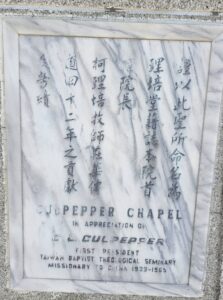 謹以此堂所命名為
理培堂藉誌本院首
院長
柯理培牧師在華傳
道四十二年之貢獻
勞績
CULPEPPER CHAPEL
IN APPRECIATION OF
C. L. CULPEPPER
FIRST PRESIDENT
TAIWAN BAPTIST THEOLOGICAL SEMINARY
MISSIONARY TO CHINA 1923-1965